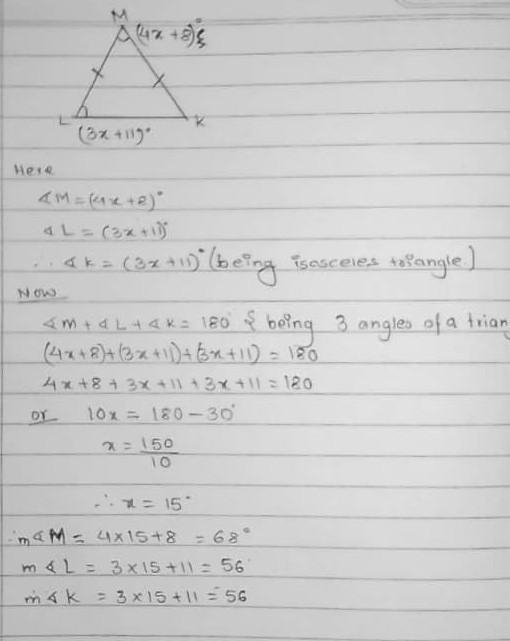 M
(4x+8)°
L
K
(3x+11)°
Here
∡M=(4x+8)°
∡L = (3x+11)°
∴ ∡K = (3x+11)° (being isosceles triangle)
Now
∡M + ∡L + ∡K = 180° { being 3 angles of a trian
(4x+8)+(3x+11)+(3x+11) = 180
4x+8+3x+11+3x+11=180
or 10x = 180-30°
x = 150/10
∴ x = 15°
∴m∡M = 4×15+8 = 68°
m∡L = 3×15+11 = 56°
m∡K = 3×15+11 = 56